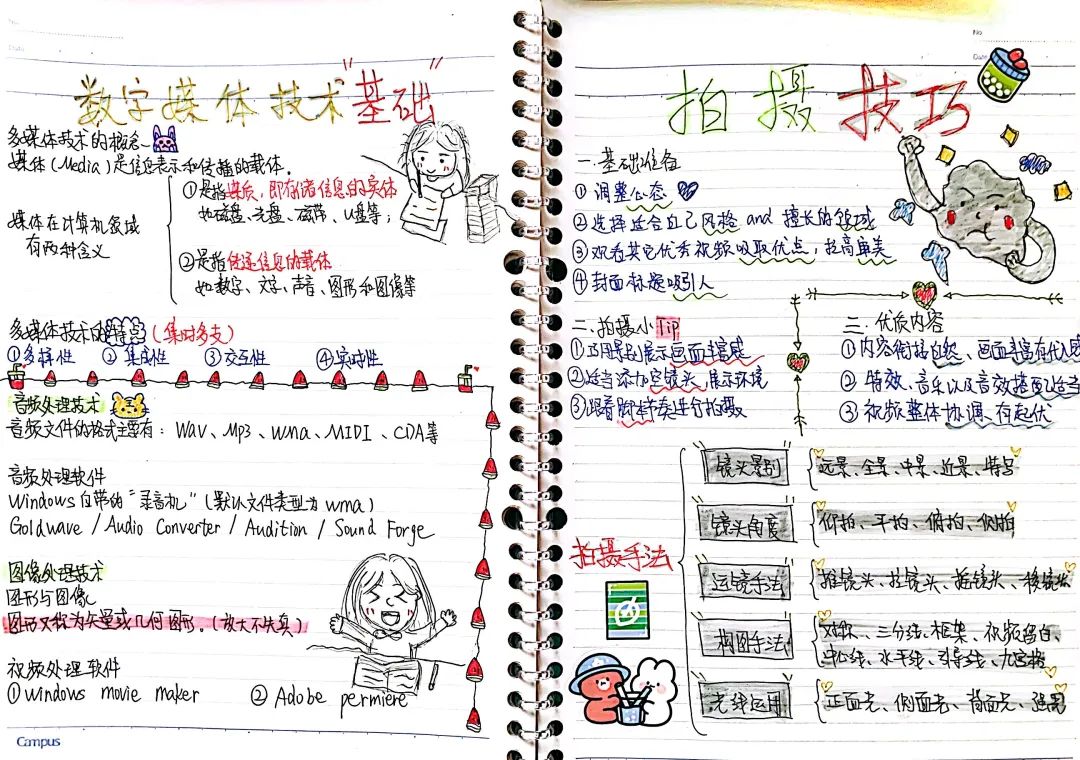 No.
Date
数字媒体技术"基础"
多媒体技术的概念
媒体(Media)是信息表示和传播的载体.
媒体在计算机领域
有两种含义
①是指媒质,即存储信息的实体
如磁盘、光盘、磁带、U盘等;
②是指传递信息的载体
如数字、文字、声音、图形和图像等
多媒体技术的特点(集时多支)
①多样性 ②集成性 ③交互性 ④实时性
音频处理技术
音频文件的格式主要有:Wav、Mp3、wma、MIDI、CDA等
音频处理软件
Windows自带的"录音机"(默认文件类型为wma)
Goldwave/Audio Converter/Audition/Sound Forge
图像处理技术
图形与图像
图形又称为矢量或几何图形.(放大不失真)
视频处理软件
①windows movie maker ②Adobe permiere
Campus
No
Date
拍摄技巧
一.基础准备
①调整心态
②选择适合自己风格and擅长的领域
③观看其它优秀视频吸取优点,提高审美
④封面标题吸引人
二.拍摄小Tip
①巧用景别展示画面丰富感
②适当添加空镜头,展示环境
③跟着脚本节奏进行拍摄
三.优质内容
①内容衔接自然、画面丰富有代入感
②特效、音乐以及音效搭配适当
③视频整体协调、有起伏
拍摄手法
镜头景别 远景、全景、中景、近景、特写
镜头角度 仰拍、平拍、俯拍、侧拍
运镜手法 推镜头、拉镜头、摇镜头、移镜头
构图手法 对称、三分线、框架、视频留白、
中心线、水平线、引导线、九宫格
光线运用 正面光、侧面光、背面光、逆光